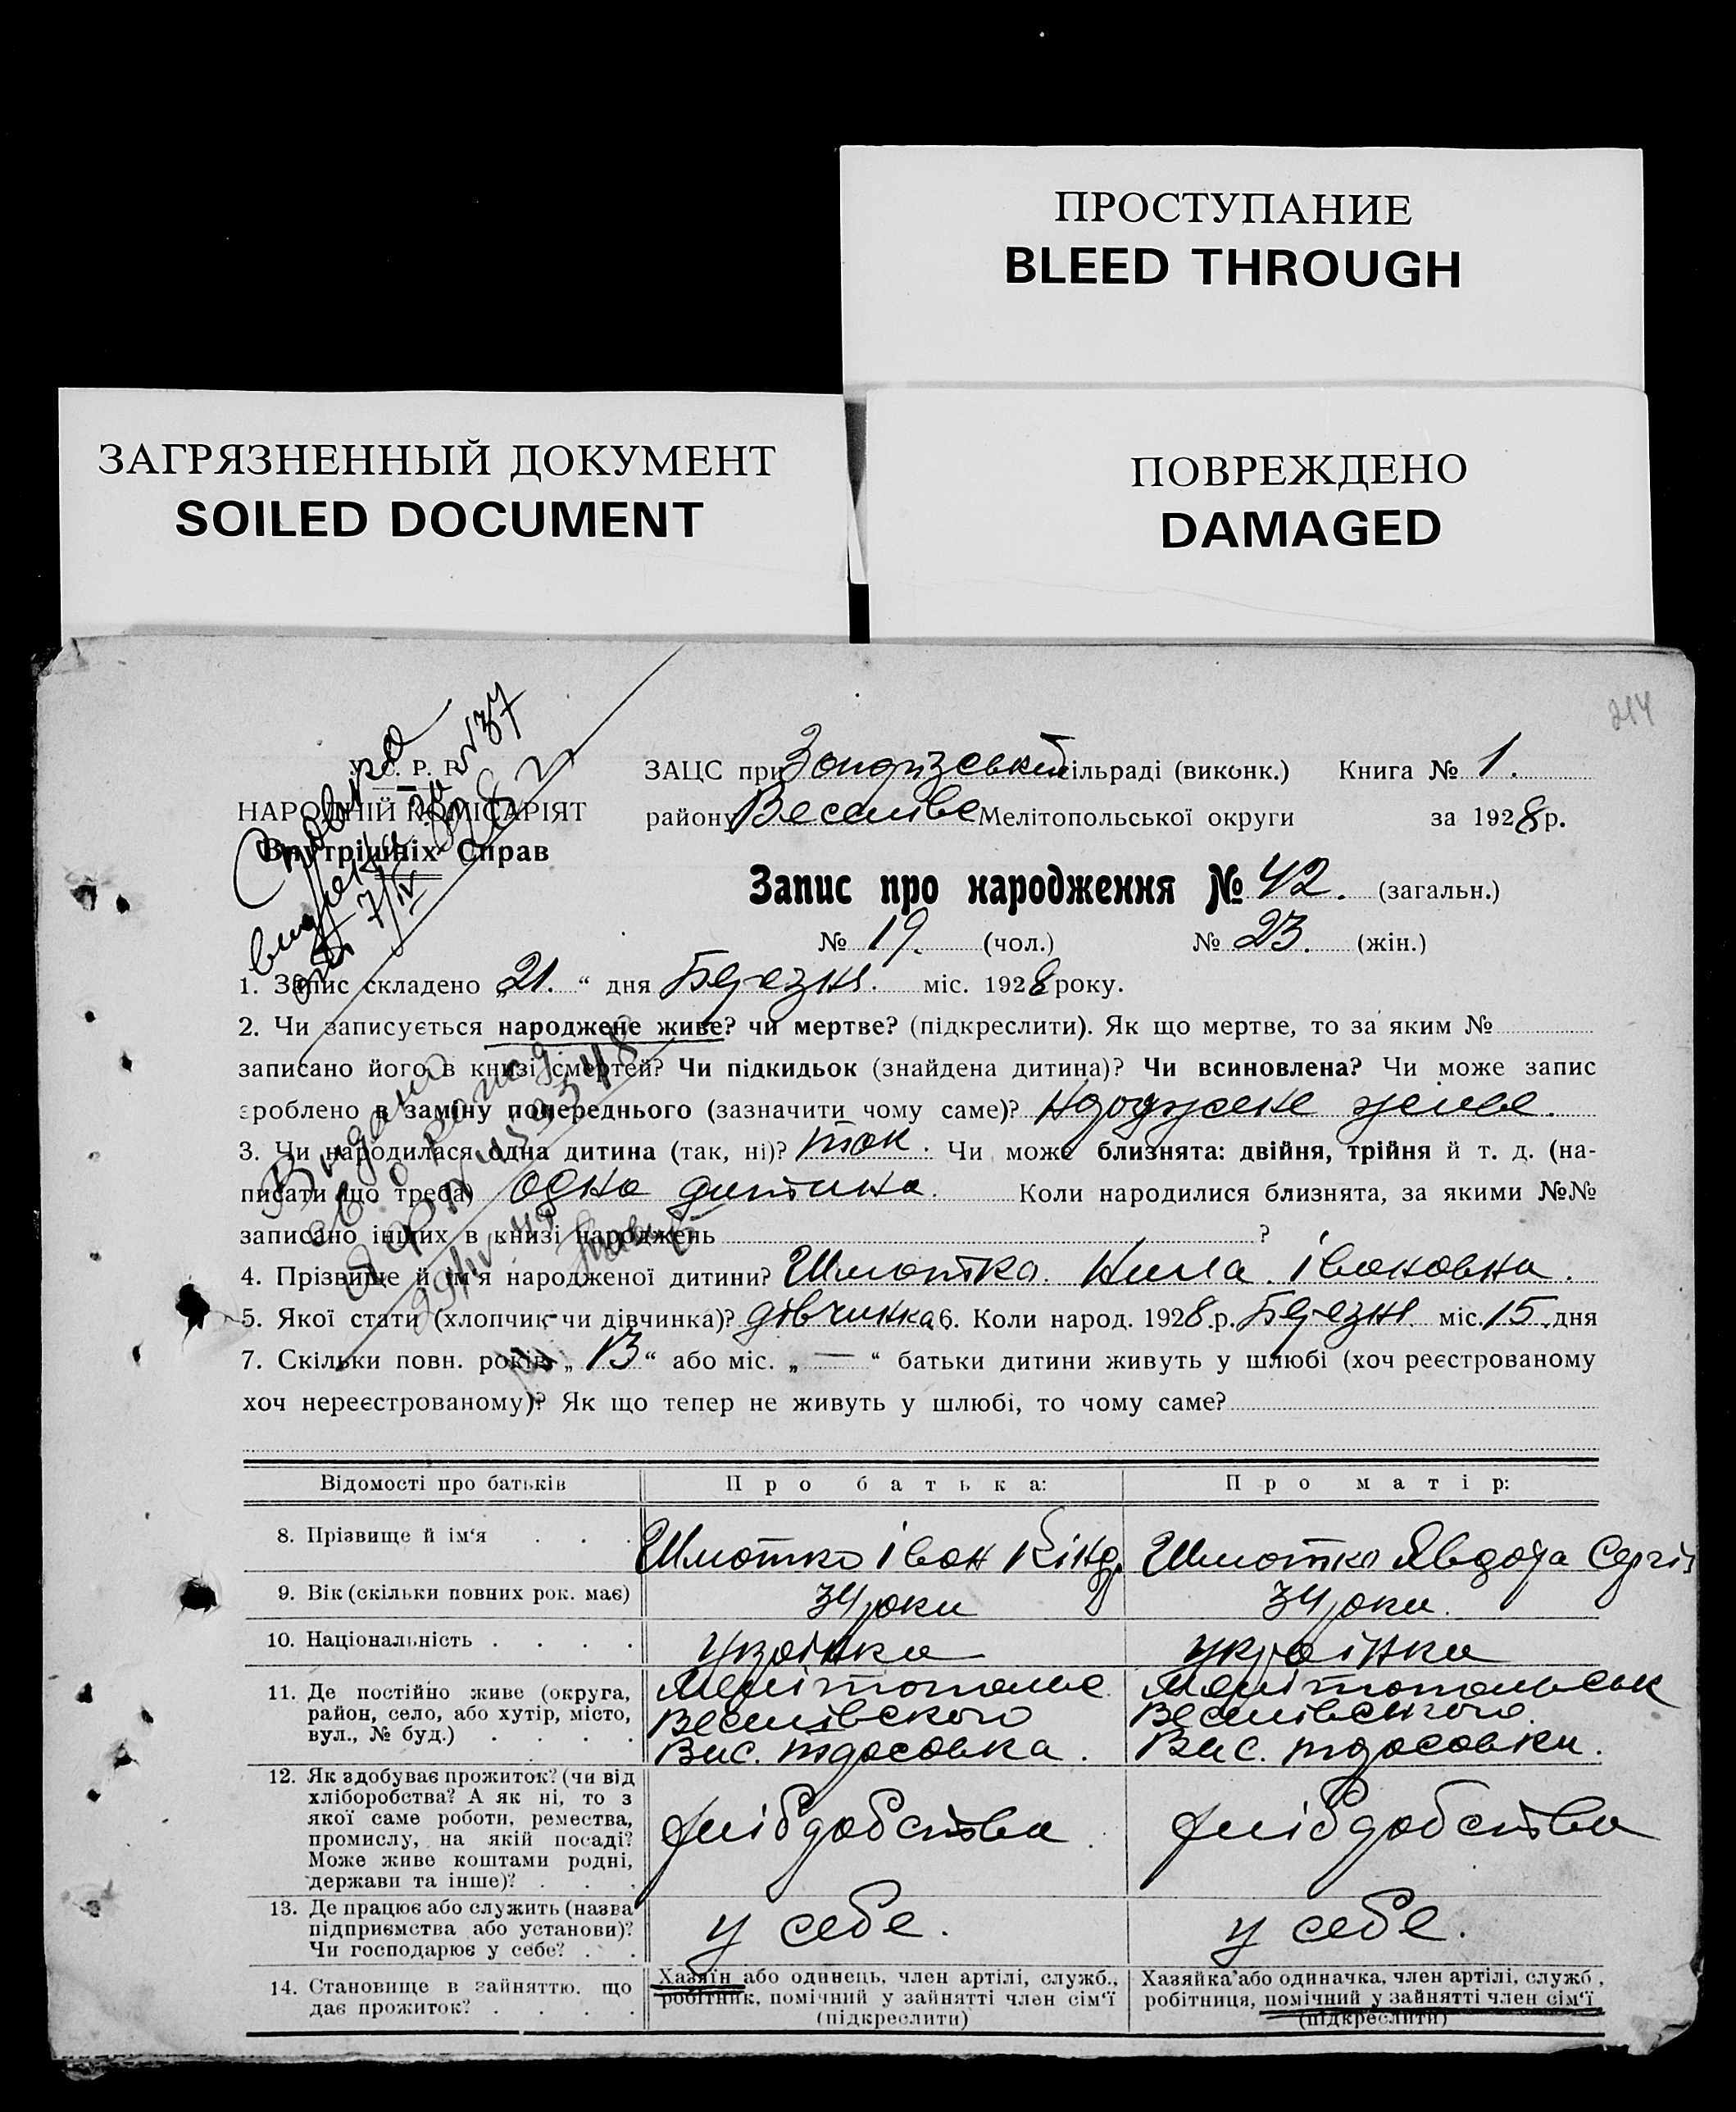 ПРОСТУПАНИЕ
BLEED THROUGH
ЗАГРЯЗНЕННЫЙ ДОКУМЕНТ
SOILED DOCUMENT
ПОВРЕЖДЕНО
DAMAGED
214
У. С. Р. Р.
НАРОДНІЙ КОМІСАРІЯТ
Внутрішніх Справ
Довідка
за №37
7/IV
1928 р
ЗАЦС при сільраді (виконк.) Книга № 1.
району Веселівс Мелітопольської округи за 1928 р.
Запис про народження № 42. (загальн.)
№ 19. (чол.) № 23. (жін.)
1. Запис складено „21.“ дня Березня. міс. 1928 року.
2. Чи записується народжене живе? чи мертве? (підкреслити). Як що мертве, то за яким №
записано його в книзі смертей? Чи підкидьок (знайдена дитина)? Чи всиновлена? Чи може запис
зроблено в заміну попереднього (зазначити чому саме)? народжене живе.
3. Чи народилася одна дитина (так, ні)? так. Чи може близнята: двійня, трійня й т. д. (на-
писати що треба) одна дитина. Коли народилися близнята, за якими №№
записано інших в книзі народжень ?
Видано
4. Прізвище й ім'я народженої дитини? Шматка. Нила. Івановна.
5. Якої стати (хлопчик чи дівчинка)? дівчинка 6. Коли народ. 1928 р. Березня. міс. 15. дня
7. Скільки повн. років „13“ або міс. „—“ батьки дитини живуть у шлюбі (хоч реєстрованому
хоч нереєстрованому)? Як що тепер не живуть у шлюбі, то чому саме?
Відомості про батьків Про батька: Про матір:
8. Прізвище й ім'я . . . Шматко Іван Кінд. Шматка Явдоха Сергі
9. Вік (скільки повних рок. має) 34 роки 34 роки.
10. Національність . . . . українка
11. Де постійно живе (округа, Мелітопольс. Мелітопольськ
район, село, або хутір, місто, Веселівского Веселівського.
вул., № буд.) . . . . Вис. Тарасовка. Вис. Тарасовки.
12. Як здобуває прожиток? (чи від
хліборобства? А як ні, то з
якої саме роботи, ремества, хлібробства хлібробства
промислу, на якій посаді?
Може живе коштами родні,
держави та інше)? . . .
13. Де працює або служить (назва
підприємства або установи)? у себе. у себе.
Чи господарює у себе? . .
14. Становище в зайняттю, що Хазяїн або одинець, член артілі, служб., Хазяйка або одиначка, член артілі, служб.,
дає прожиток? . . . . робітник, помічний у зайнятті член сім'ї робітниця, помічний у зайнятті член сім'ї
(підкреслити) (підкреслити)